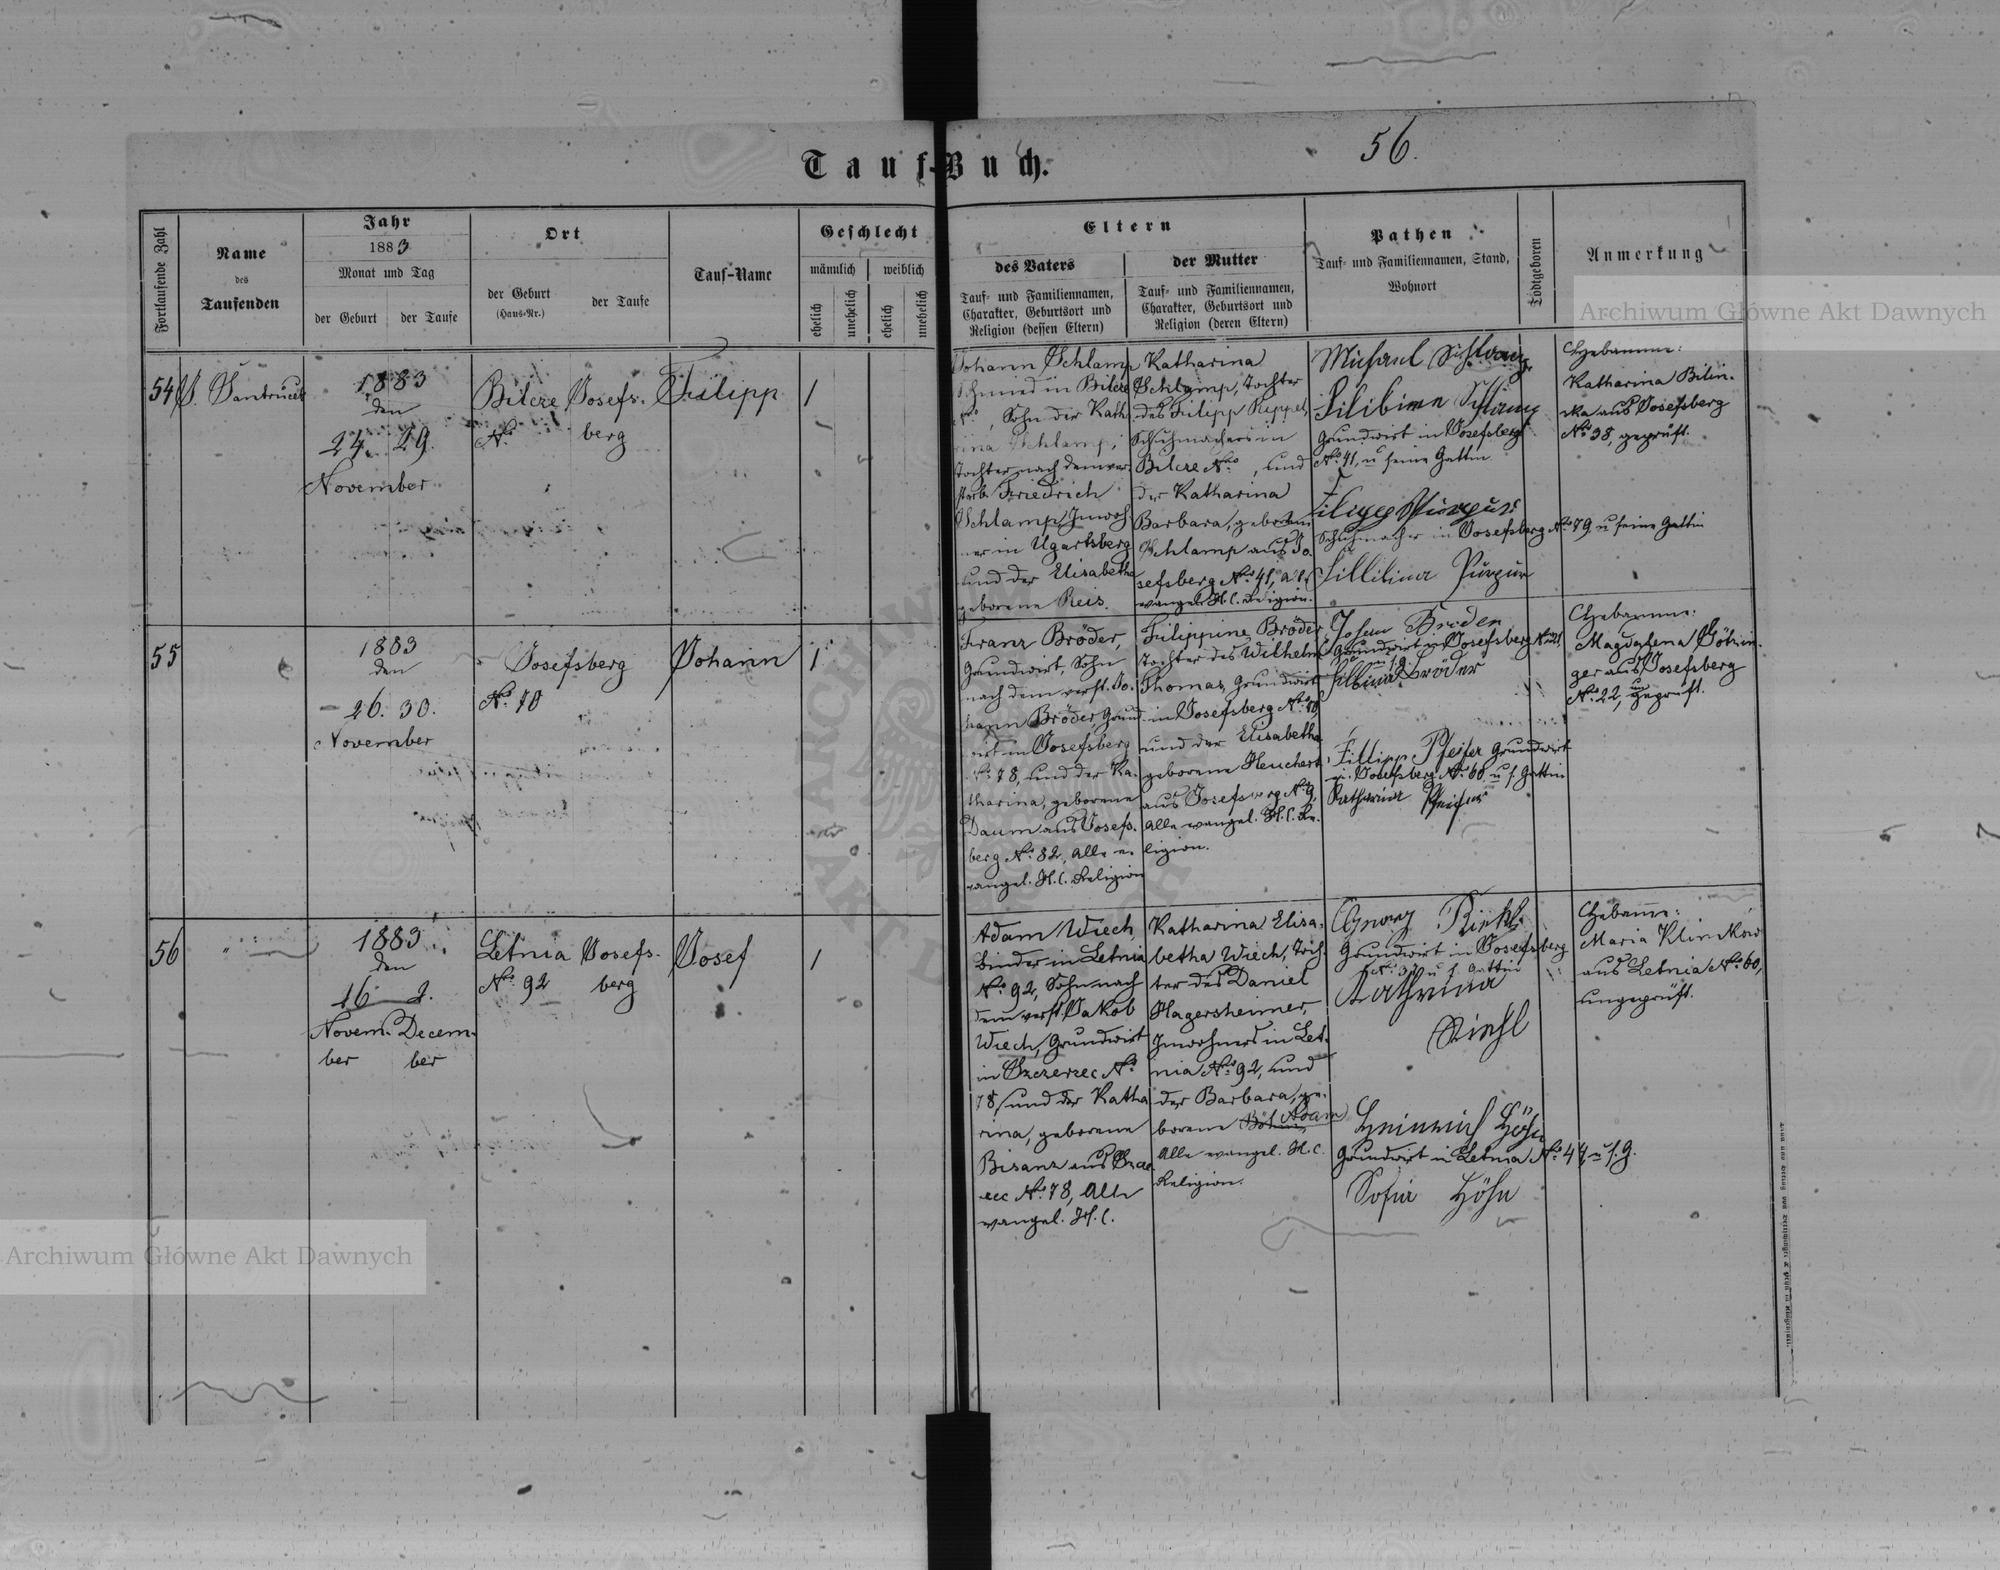 Tauf-Buch.
56.
Fortlaufende Zahl
Name
des
Taufenden
Jahr
1883
Monat und Tag
der Geburt
der Taufe
Ort
der Geburt
(Haus-Nr.)
der Taufe
Tauf-Name
Geschlecht
männlich
weiblich
ehelich
unehelich
ehelich
unehelich
Eltern
des Vaters
Tauf- und Familiennamen,
Charakter, Geburtsort und
Religion (dessen Eltern)
der Mutter
Tauf- und Familiennamen,
Charakter, Geburtsort und
Religion (deren Eltern)
Pathen
Tauf- und Familiennamen, Stand,
Wohnort
Todtgeboren
Anmerkung
54
1883
den
24. 29.
November
Bilcze
No.
Josefs-
berg
Filipp
1
Johann Schlamp
Schmied in Bilcze
No. , Sohn der Katha
rina Schlamp,
Tochter nach dem ver-
storb. Friedrich
Schlamp, Inwoh
ner in Ugartsberg
und der Elisabetha
geborene Reis.
Katharina
Schlamp, Tochter
des Filipp Rippel,
Schuhmachers in
Bilcze No. , und
der Katharina
Barbara, geborene
Schlamp aus Jo-
sefsberg No. 41, alle
evangel. H. C. Religion.
Michael
Grundwirt in Josefsberg
No. 41, u seine Gattin
Schuhmacher in Josefsberg No. 79 u seine Gattin
Hebamme:
Katharina Bilin-
ska aus Josefsberg
No. 38, geprüft.
55
1883
den
26. 30.
November
Josefsberg
No. 70
Johann
1
Franz Bröder,
Grundwirt, Sohn
nach dem verst. Jo-
hann Bröder Grund
wirt in Josefsberg
No. 78, und der Ka-
tharina, geborene
Daum aus Josefs-
berg No. 82, alle e-
vangel. H. C. Religion
Filippine Bröder
Tochter des Wilhelm
Thomas, Grundwirt
in Josefsberg No. 70
und der Elisabetha
geborene Heuchert
aus Josefsberg No. 9,
alle evangel. H. C. Re-
ligion.
Johan Bröder
Grundwirt in Josefsberg
Bröder
Fillipp Pfeifer Grundwirt
in Josefsberg No. 60 u s. Gattin
Katharina Pfeifer
Hebamme:
Magdalena
ger aus Josefsberg
No. 22, ungeprüft.
56
"
1883
den
16 2.
Novem- Decem-
ber ber
Letnia
No. 92
Josefs-
berg
Josef
1
Adam Wiech,
Binder in Letnia
No. 92, Sohn nach
dem verst. Jakob
Wiech, Grundwirt
in Szczerzec No.
78, und der Katha
rina, geborene
Bisanz aus Szcze
rzec No. 78, alle
evangel. H. C.
Katharina Elisa-
betha Wiech, Toch-
ter des Daniel
Hagersheimer,
Inwohners in Let-
nia No. 92, und
der Barbara, ge-
borene Adam
alle evangel. H. C.
Religion.
Ignaz Riehl
Grundwirt in Josefsberg
No. 37 u s. Gattin
Kathrina
Riehl
Heinrich Höhn
Grundwirt in Letnia No. 44 u s. G.
Sofia Höhn
Hebamme:
Maria Klimków
aus Letnia No. 60,
ungeprüft.
Archiwum Główne Akt Dawnych
Archiwum Główne Akt Dawnych